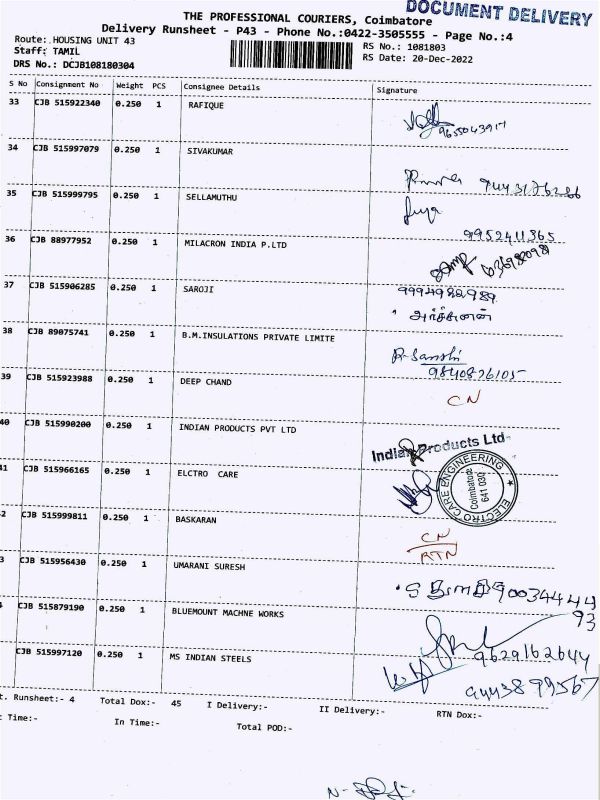 DOCUMENT DELIVERY
THE PROFESSIONAL COURIERS, Coimbatore
Delivery Runsheet - P43 - Phone No.:0422-3505555 - Page No.:4
Route: HOUSING UNIT 43
Staff: TAMIL
DRS No.: DCJB108180304
RS No.: 1081803
RS Date: 20-Dec-2022
S No Consignment No Weight PCS Consignee Details Signature
33 CJB 515922340 0.250 1 RAFIQUE
34 CJB 515997079 0.250 1 SIVAKUMAR
35 CJB 515999795 0.250 1 SELLAMUTHU
9952411365
36 CJB 88977952 0.250 1 MILACRON INDIA P.LTD
37 CJB 515906285 0.250 1 SAROJI 9994982989
38 CJB 89075741 0.250 1 B.M.INSULATIONS PRIVATE LIMITE
9840876105
39 CJB 515923988 0.250 1 DEEP CHAND CN
40 CJB 515990200 0.250 1 INDIAN PRODUCTS PVT LTD
Indian Products Ltd
41 CJB 515966165 0.250 1 ELCTRO CARE
ELECTRO CARE ENGINEERING
Coimbatore
641 030
2 CJB 515999811 0.250 1 BASKARAN CN
RTN
3 CJB 515956430 0.250 1 UMARANI SURESH 90034444
93
CJB 515879190 0.250 1 BLUEMOUNT MACHNE WORKS
9629162644
CJB 515997120 0.250 1 MS INDIAN STEELS
9443899567
t. Runsheet:- 4 Total Dox:- 45 I Delivery:- II Delivery:- RTN Dox:-
Time:- In Time:- Total POD:-